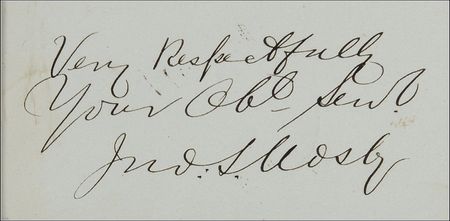 Very Respectfully
Your Obt Servt
Jno. S. Mosby